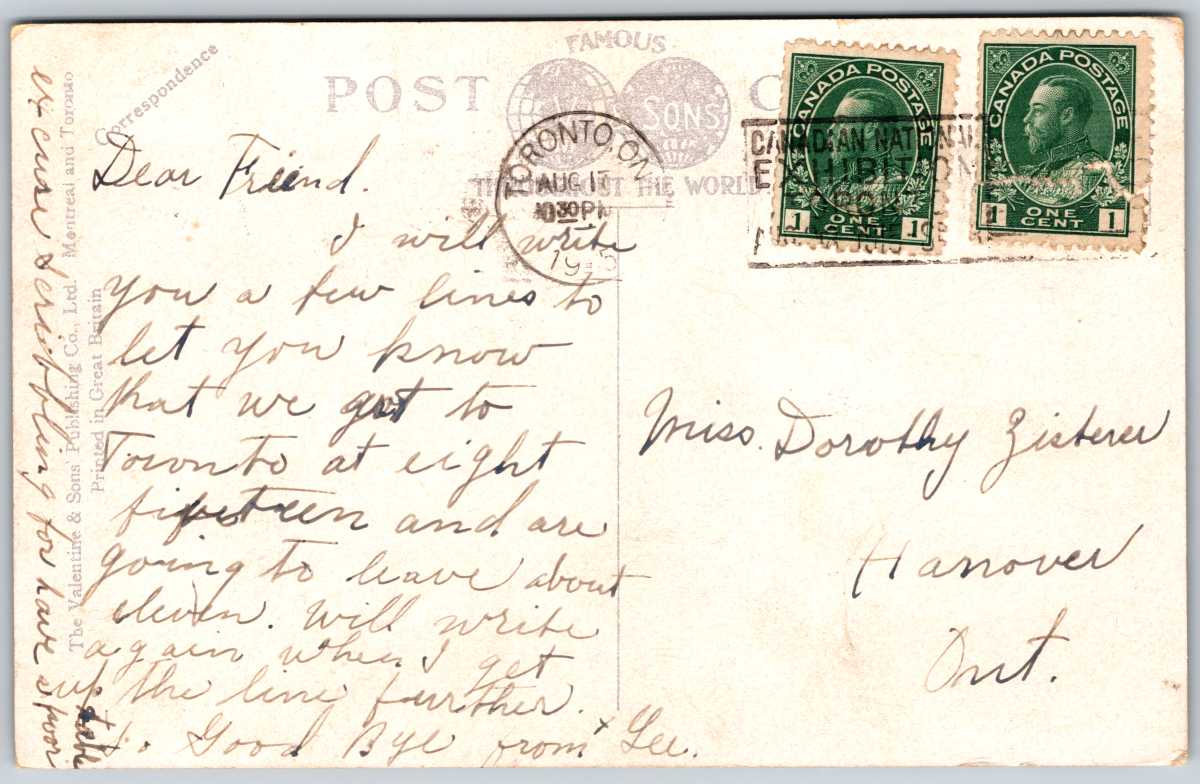 Correspondence
FAMOUS
POST C
SONS
THROUGHOUT THE WORLD
TORONTO, ON
AUG 17
10 30 PM
CANADIAN NATIONAL
EXHIBITION
TORONTO
CANADA POSTAGE
1 ONE CENT 1
CANADA POSTAGE
1 ONE CENT 1
Dear Friend.
I will write
you a few lines to
let you know
that we got to
Toronto at eight
fifeteen and are
going to leave about
eleven. Will write
again when I get
up the line further.
Good Bye from Lee.
excuse scribbling for have a poor table
Miss. Dorothy Zisterer
Hanover
Ont.
The Valentine & Sons' Publishing Co., Ltd. Montreal and Toronto
Printed in Great Britain